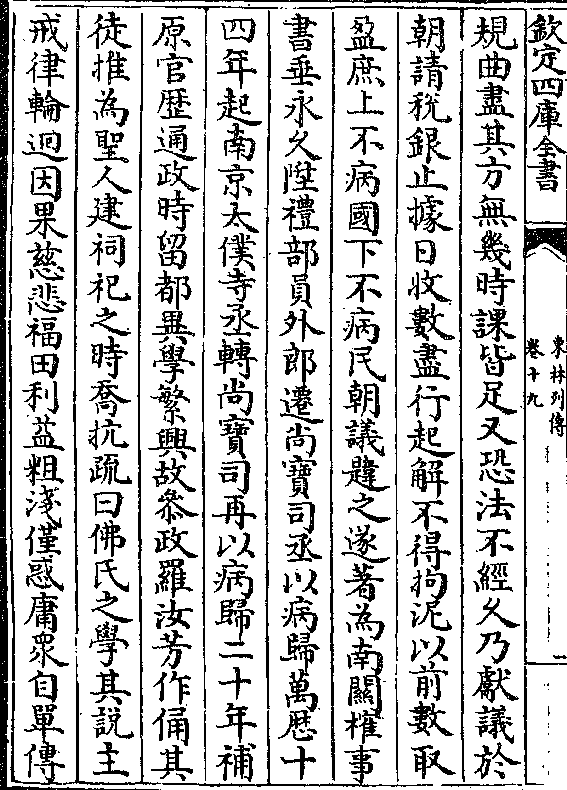 欽定四庫全書
東林列傳
卷十九
規曲盡其方無幾時課皆足又恐法不經久乃獻議於
朝請稅銀止據日收數盡行起解不得拘泥以前數取
盈庶上不病國下不病民朝議韙之遂著為南關榷事
書垂永久陞禮部員外郎遷尚寶司丞以病歸萬歴十
四年起南京太僕寺丞轉尚寶司再以病歸二十年補
原官歴通政時留都異學繁興故叅政羅汝芳作俑其
徒推為聖人建祠祀之時喬抗疏曰佛氏之學其說主
戒律輪迴因果慈悲福田利益粗淺僅惑庸衆自單傳